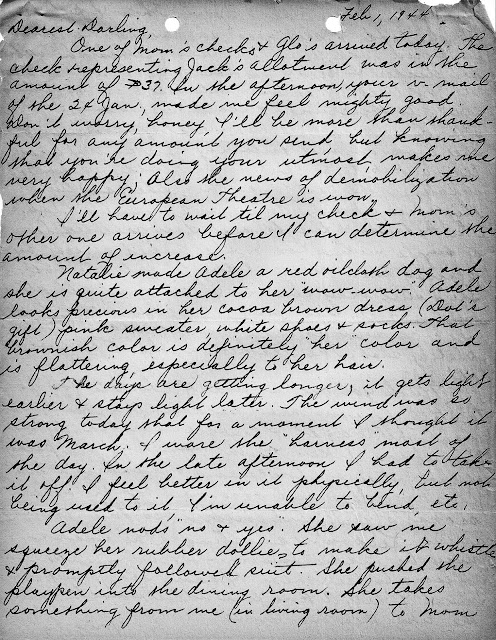 Feb 1, 1944
Dearest Darling,
One of Mom's checks & Glo's arrived today. The
check representing Jack's allotment was in the
amount of $37. In the afternoon, your v-mail
of the 24 Jan., made me feel mighty good.
Don't worry, honey I'll be more than thank-
ful for any amount you send but knowing
that you're doing your utmost makes me
very happy. Also the news of demobilization
when the European Theatre is won.
I'll have to wait til my check & Mom's
other one arrives before I can determine the
amount of increase.
Natalie made Adele a red oilcloth dog and
she is quite attached to her "wow-wow". Adele
looks precious in her cocoa brown dress, (Dot's
gift) pink sweater, white shoes & socks. That
brownish color is definitely "her" color and
is flattering, especially to her hair.
The days are getting longer; it gets light
earlier & stays light later. The wind was so
strong today that for a moment I thought it
was March. I wore the "harness" most of
the day. In the late afternoon I had to take
it off. I feel better in it physically, but not
being used to it I'm unable to bend, etc.
Adele nods "no" & "yes". She saw me
squeeze her rubber dollie, to make it whistle
& promptly followed suit. She pushed the
playpen into the dining room. She takes
something from me (in living room) to Mom